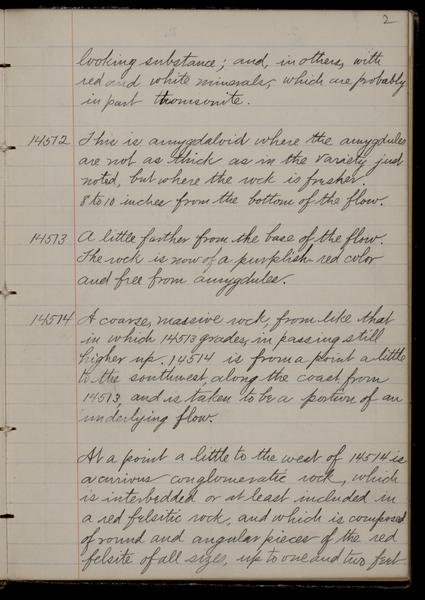 2
looking substance; and, in others, with
red and white minerals, which are probably
in part thomsonite.
14512 This is amygdaloid where the amygdules
are not as thick as in the variety just
noted, but where the rock is fresher.
8 to 10 inches from the bottom of the flow.
14513 A little farther from the base of the flow.
The rock is now of a purplish red color
and free from amygdules.
14514 A coarse, massive rock, from like that
in which 14513 grades, in passing still
higher up. 14514 is from a point a little
to the southwest, along the coast, from
14513, and is taken to be a portion of an
underlying flow.
At a point a little to the west of 14514 is
a curious conglomeratic rock, which
is interbedded or at least included in
a red felsitic rock, and which is composed
of round and angular pieces of the red
felsite of all sizes, up to one and two feet